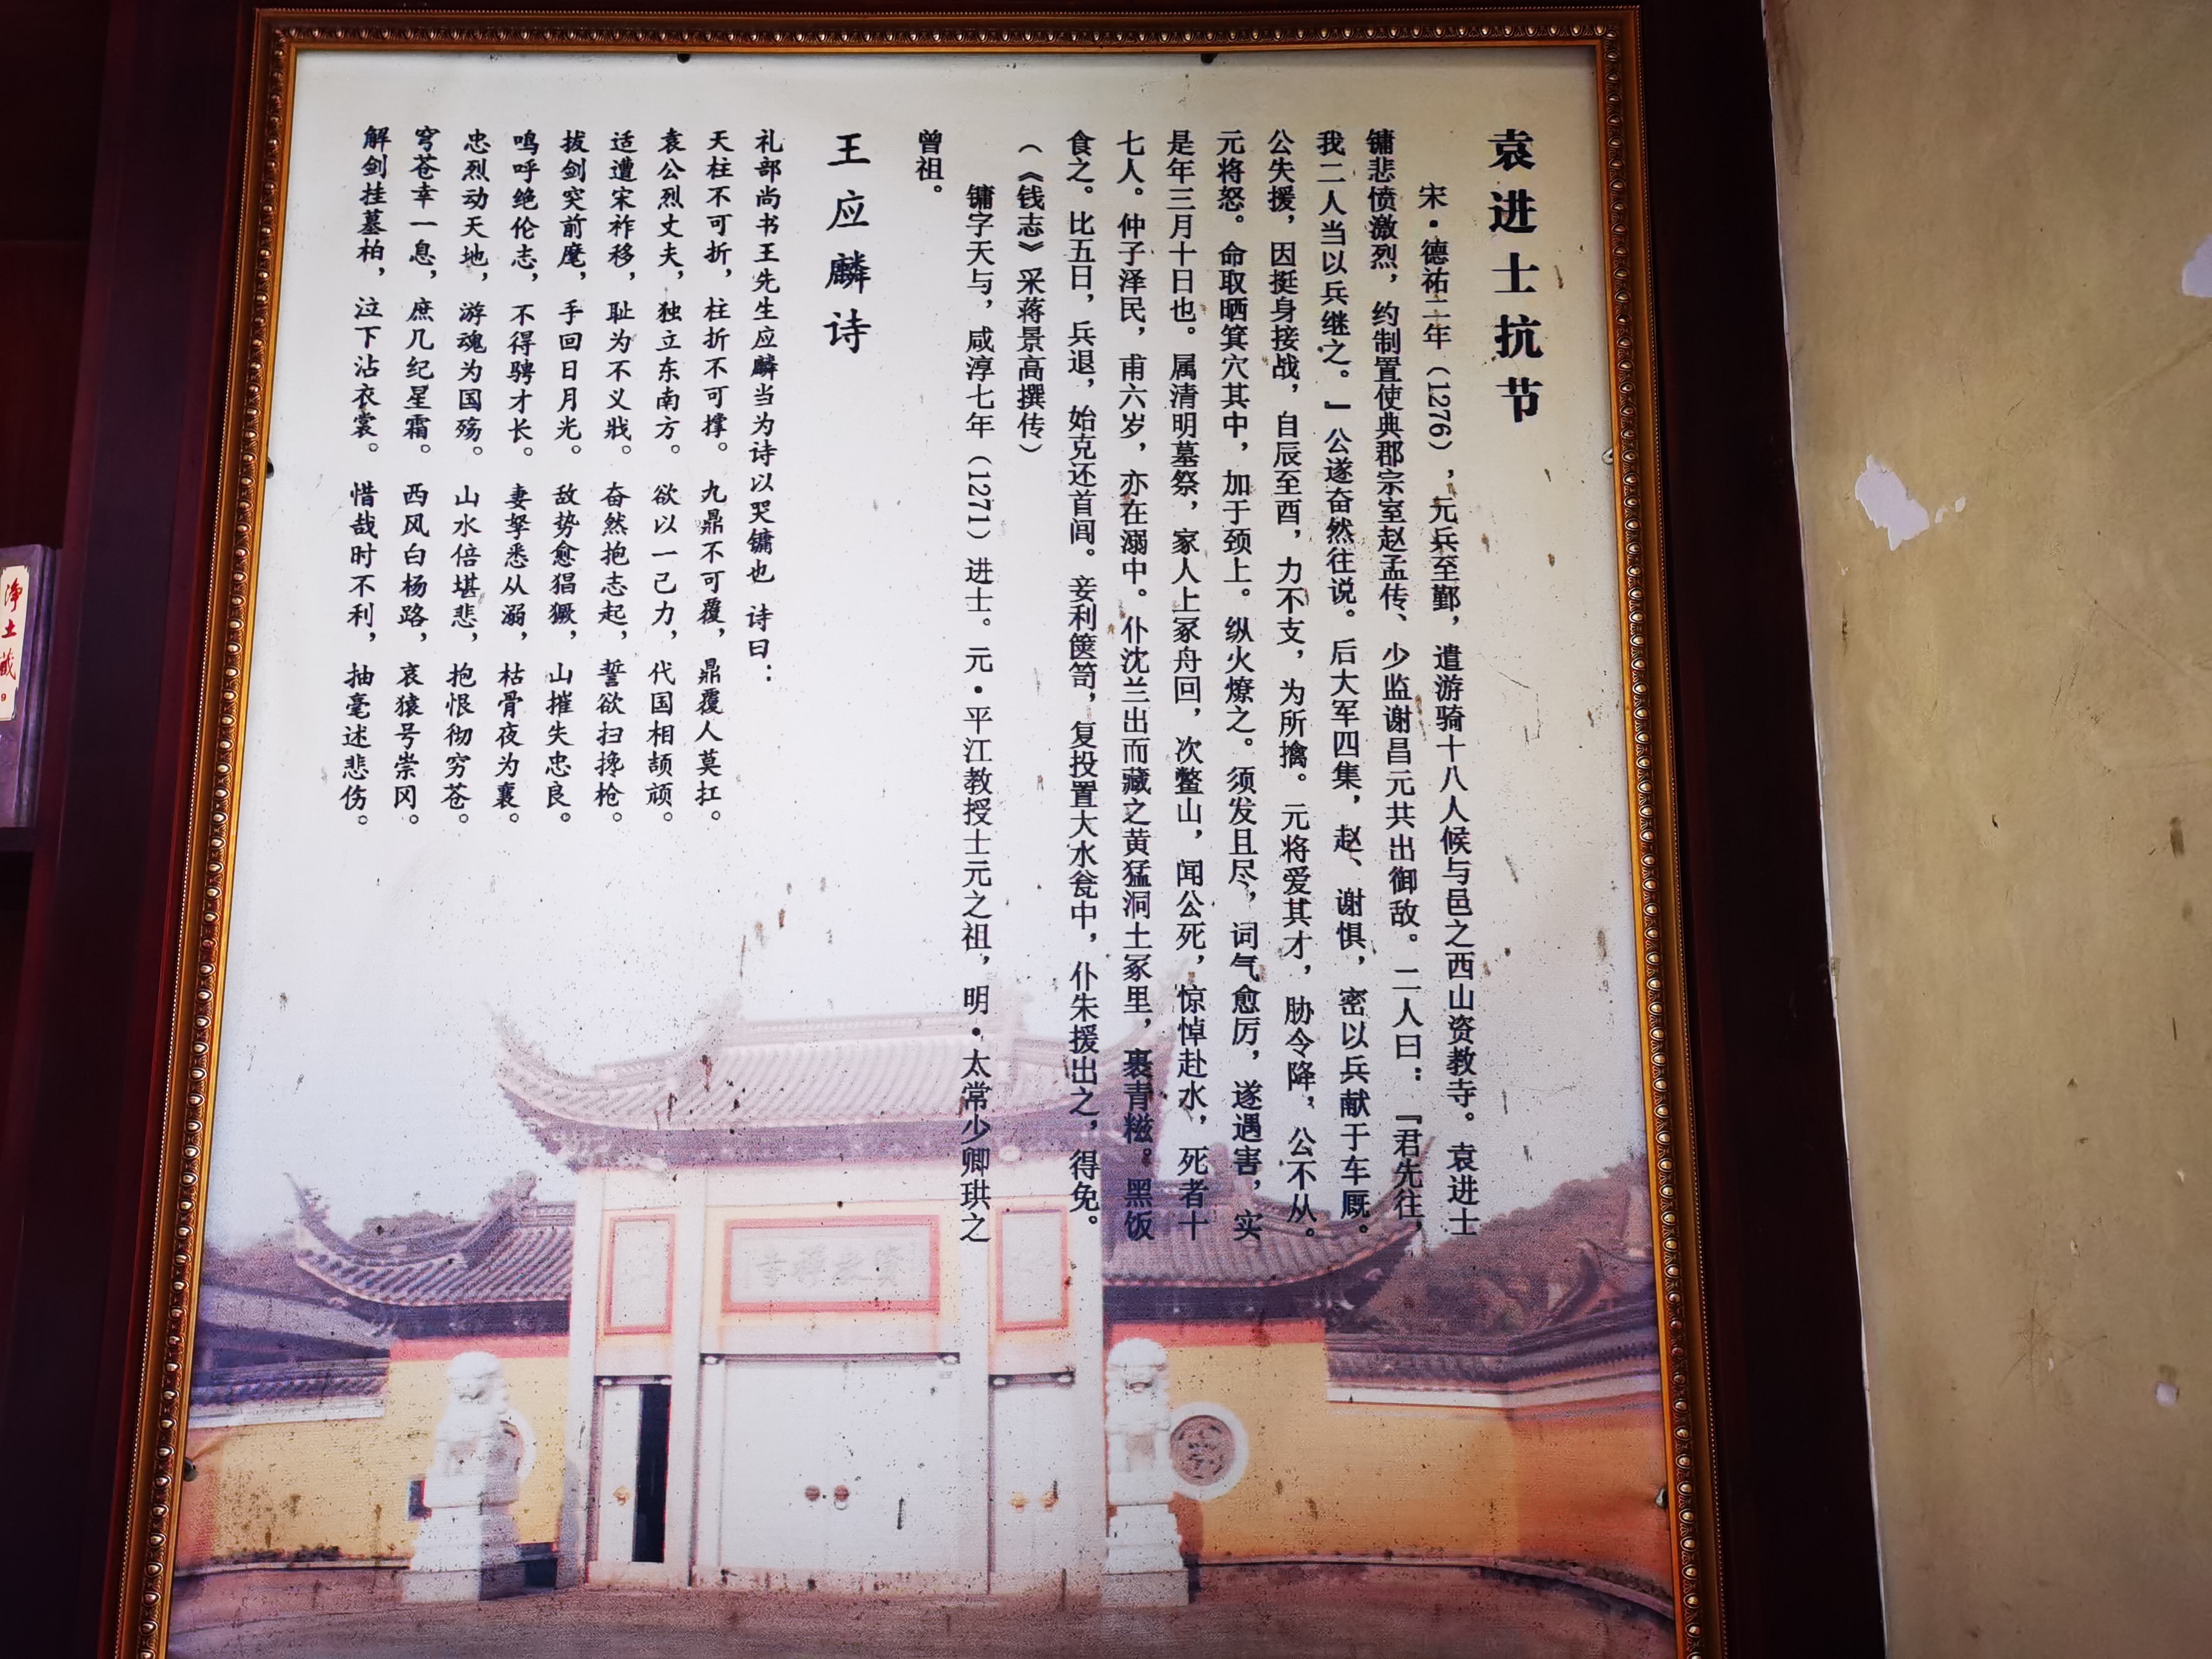 袁进士抗节
宋·德祐二年（1276），元兵至鄞，遣游骑十八人候与邑之西山资教寺。袁进士
镛悲愤激烈，约制置使典郡宗室赵孟传、少监谢昌元共出御敌。二人曰：『君先往，
我二人当以兵继之。』公遂奋然往说。后大军四集，赵、谢惧，密以兵献于车厩。
公失援，因挺身接战，自辰至酉，力不支，为所擒。元将爱其才，胁令降，公不从。
元将怒。命取晒箕穴其中，加于颈上。纵火燎之。须发且尽，词气愈厉，遂遇害，实
是年三月十日也。属清明墓祭，家人上冢舟回，次鳖山，闻公死，惊悼赴水，死者十
七人。仲子泽民，甫六岁，亦在溺中。仆沈兰出而藏之黄猛洞土冢里，裹青糍。黑饭
食之。比五日，兵退，始克还首闾。妾利箧笥，复投置大水瓮中，仆朱援出之，得免。
（《钱志》采蒋景高撰传）
镛字天与，咸淳七年（1271）进士。元·平江教授士元之祖，明·太常少卿珙之
曾祖。
王应麟诗
礼部尚书王先生应麟当为诗以哭镛也 诗曰：
天柱不可折，柱折不可撑。九鼎不可覆，鼎覆人莫扛。
袁公烈丈夫，独立东南方。欲以一己力，代国相颉颃。
适遭宋祚移，耻为不义戕。奋然抱志起，誓欲扫搀枪。
拔剑突前麾，手回日月光。敌势愈猖獗，山摧失忠良。
鸣呼绝伦志，不得骋才长。妻孥悉从溺，枯骨夜为襄。
忠烈动天地，游魂为国殇。山水倍堪悲，抱恨彻穷苍。
穹苍幸一息，庶几纪星霜。西风白杨路，哀猿号崇冈。
解剑挂墓柏，泣下沾衣裳。惜哉时不利，抽毫述悲伤。
资教禅寺
净土藏
9